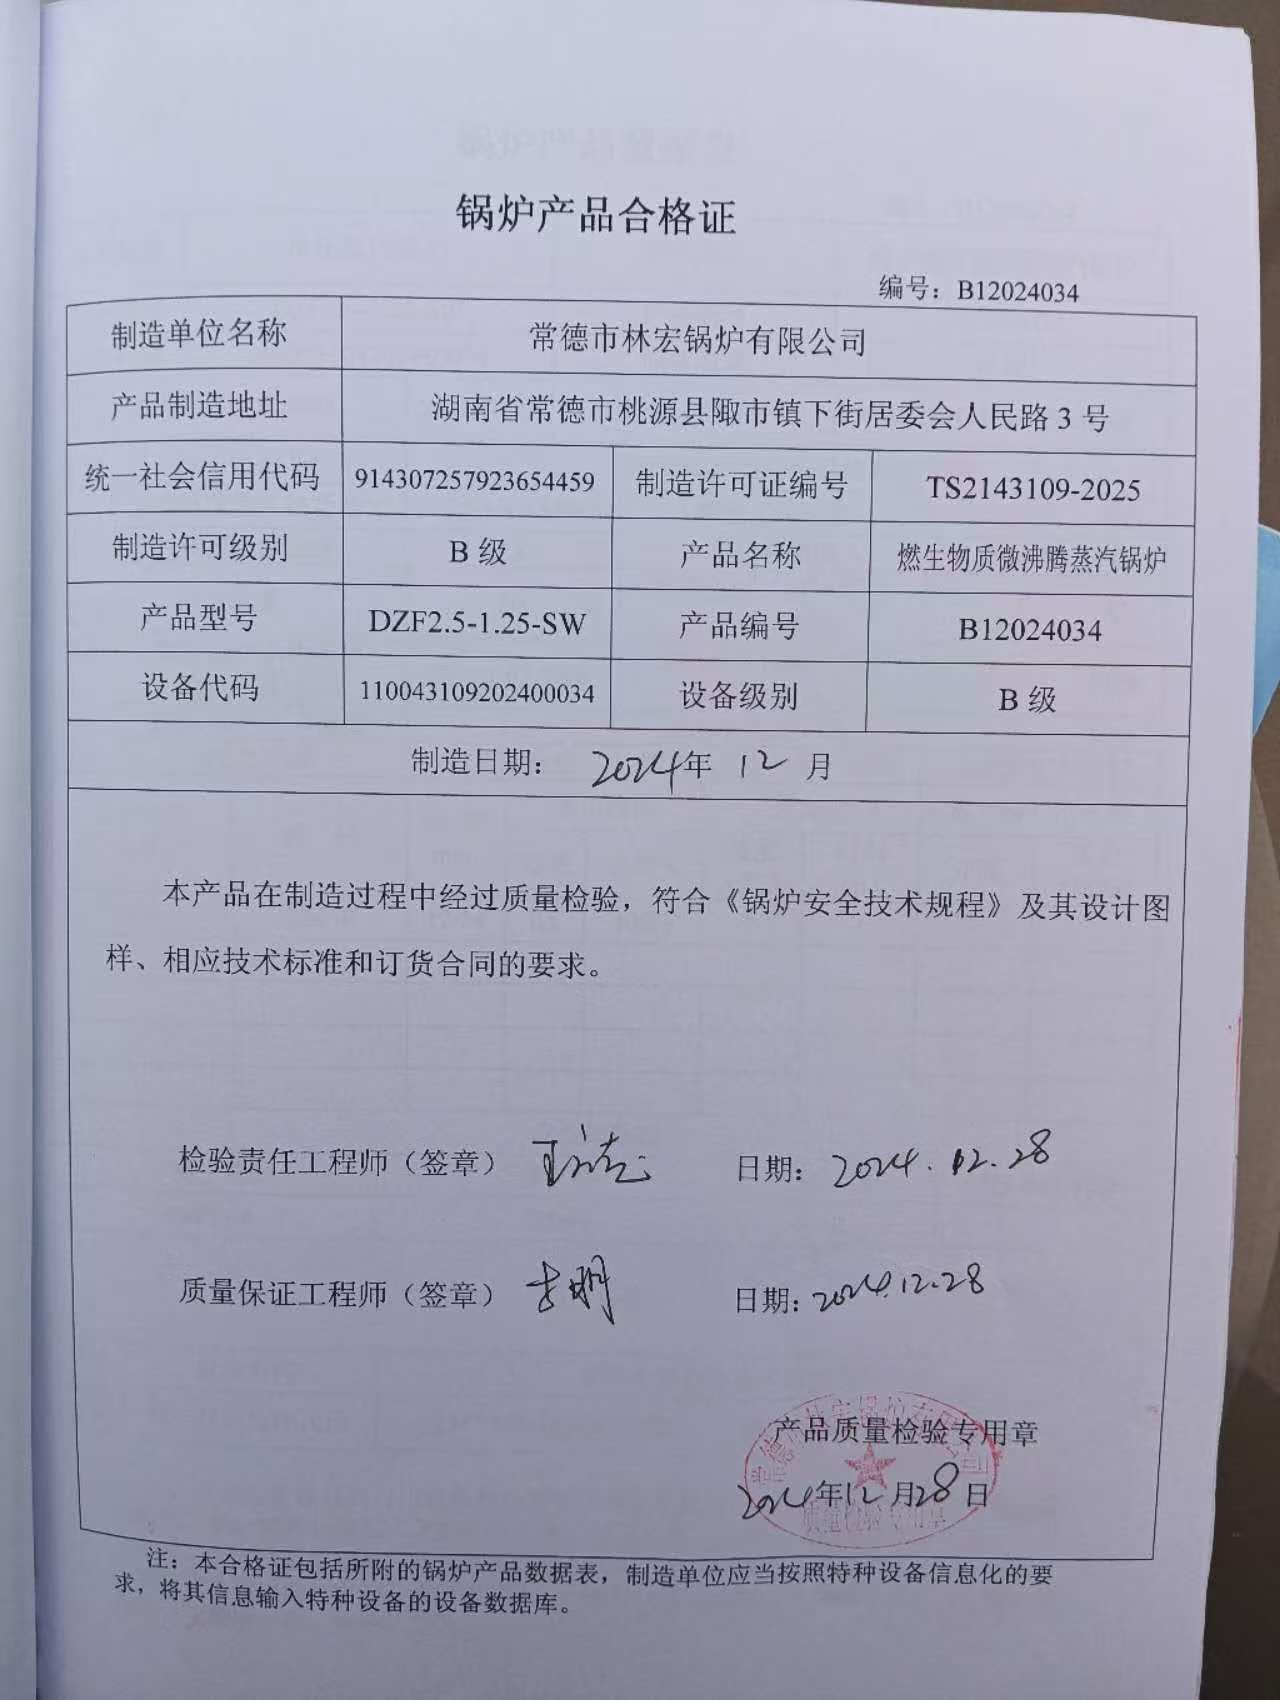 锅炉产品合格证
编号：B12024034
制造单位名称 常德市林宏锅炉有限公司
产品制造地址 湖南省常德市桃源县陬市镇下街居委会人民路 3 号
统一社会信用代码 914307257923654459 制造许可证编号 TS2143109-2025
制造许可级别 B 级 产品名称 燃生物质微沸腾蒸汽锅炉
产品型号 DZF2.5-1.25-SW 产品编号 B12024034
设备代码 110043109202400034 设备级别 B 级
制造日期： 2024年 12 月
本产品在制造过程中经过质量检验，符合《锅炉安全技术规程》及其设计图
样、相应技术标准和订货合同的要求。
检验责任工程师（签章） 日期：2024.12.28
质量保证工程师（签章） 日期：2024.12.28
常德市林宏锅炉有限公司
产品质量检验专用章
2024年12月28日
质量检验专用章
注：本合格证包括所附的锅炉产品数据表，制造单位应当按照特种设备信息化的要
求，将其信息输入特种设备的设备数据库。